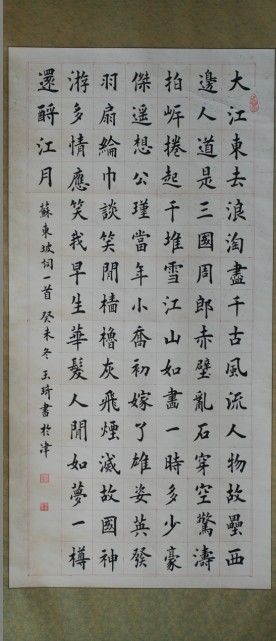 大江東去浪淘盡千古風流人物故壘西
邊人道是三國周郎赤壁亂石穿空驚濤
拍岍捲起千堆雪江山如畫一時多少豪
傑遥想公瑾當年小喬初嫁了雄姿英發
羽扇綸巾談笑閒檣櫓灰飛煙滅故國神
游多情應笑我早生華髮人閒如夢一樽
還酹江月 蘇東坡詞一首 癸未冬 王琦書於津